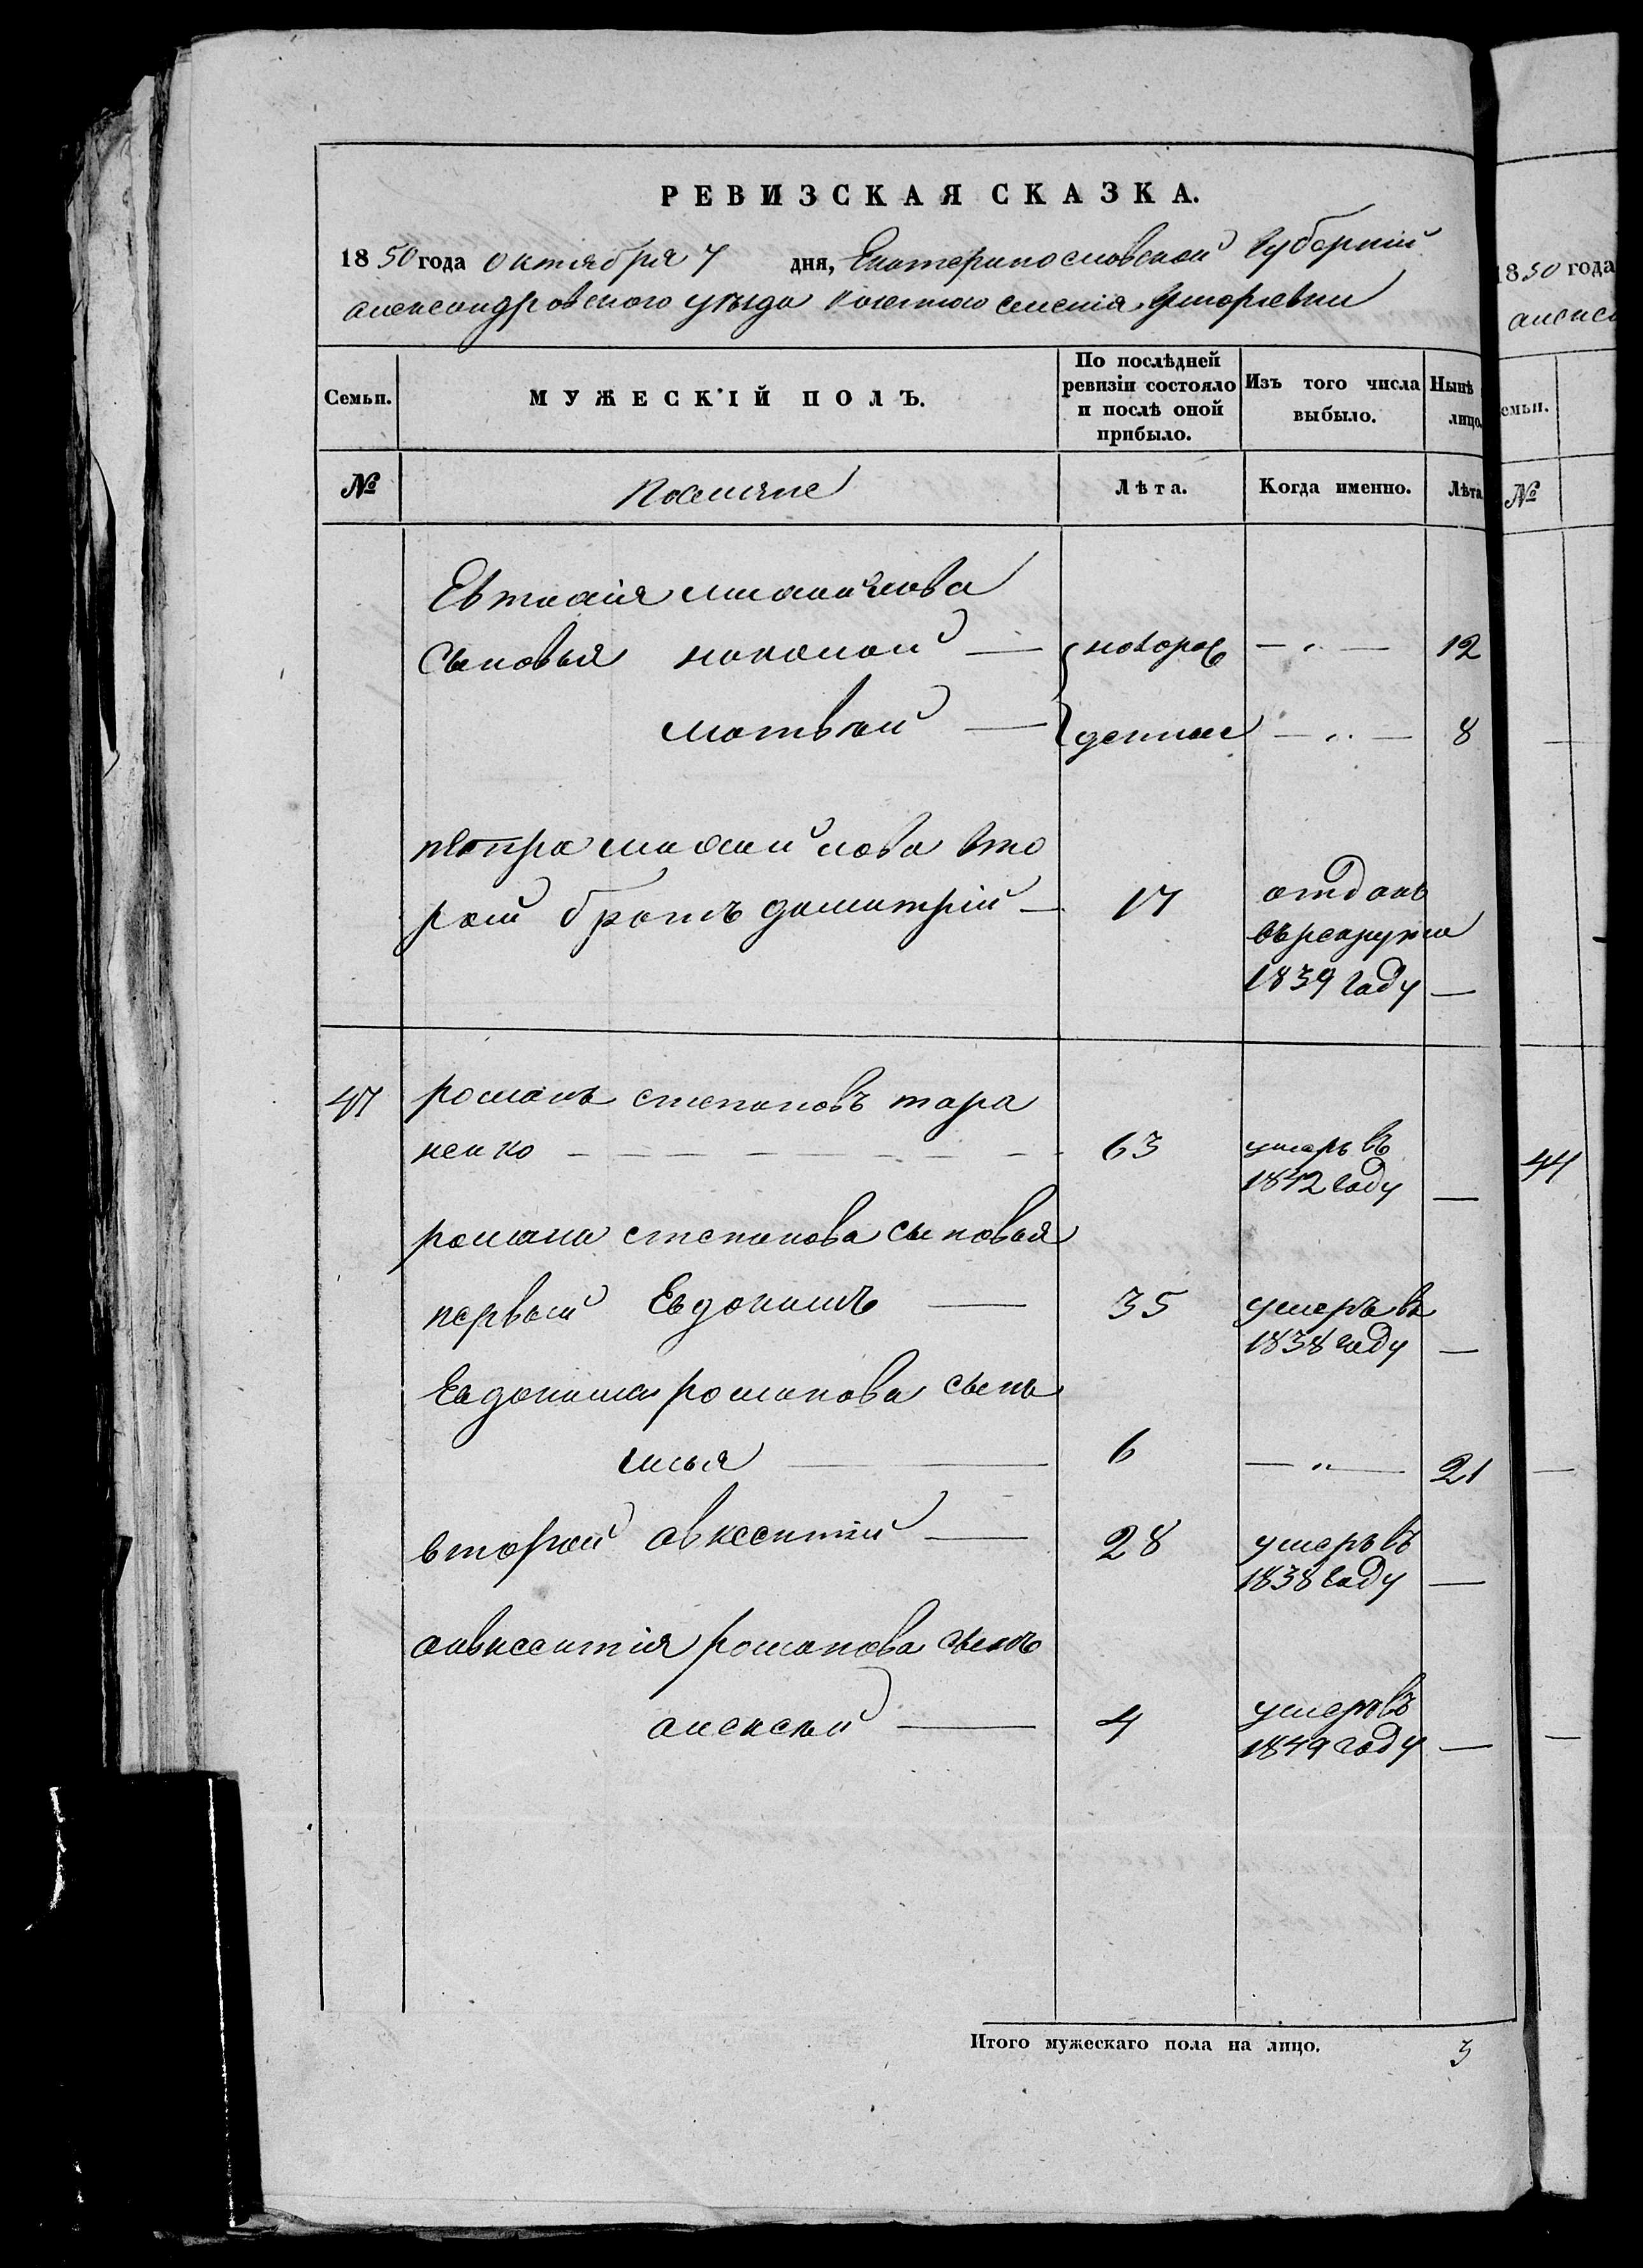 РЕВИЗСКАЯ СКАЗКА.
1850 года октября 7 дня, Екатеринославской Губерніи
александровского уезда казенного селенія
Семьи.
МУЖЕСКІЙ ПОЛЪ.
По послѣдней ревизіи состояло и послѣ оной прибыло.
Изъ того числа выбыло.
Нынѣ лицо.
№
Поселяне
Лѣта.
Когда именно.
Лѣта
Евтихія михайлова
сыновья николай — новорож — „ — 12
матвѣй — денные — „ — 8
петра михайлова вто
рой братъ димитрій — 17 отданъ
въ рекруты
1839 году —
47 романъ степановъ тара
ненко — 63 умеръ въ
1842 году —
романа степанова сыновья
первый Евдокимъ — 35 умеръ въ
1838 году —
Евдокима романова сынъ
илья — 6 — „ — 21
второй авксентий — 28 умеръ въ
1838 году —
авксентия романова сынъ
алексѣй — 4 умеръ въ
1849 году —
Итого мужескаго пола на лицо. 3
1850 года
алекса
емьи.
№
44